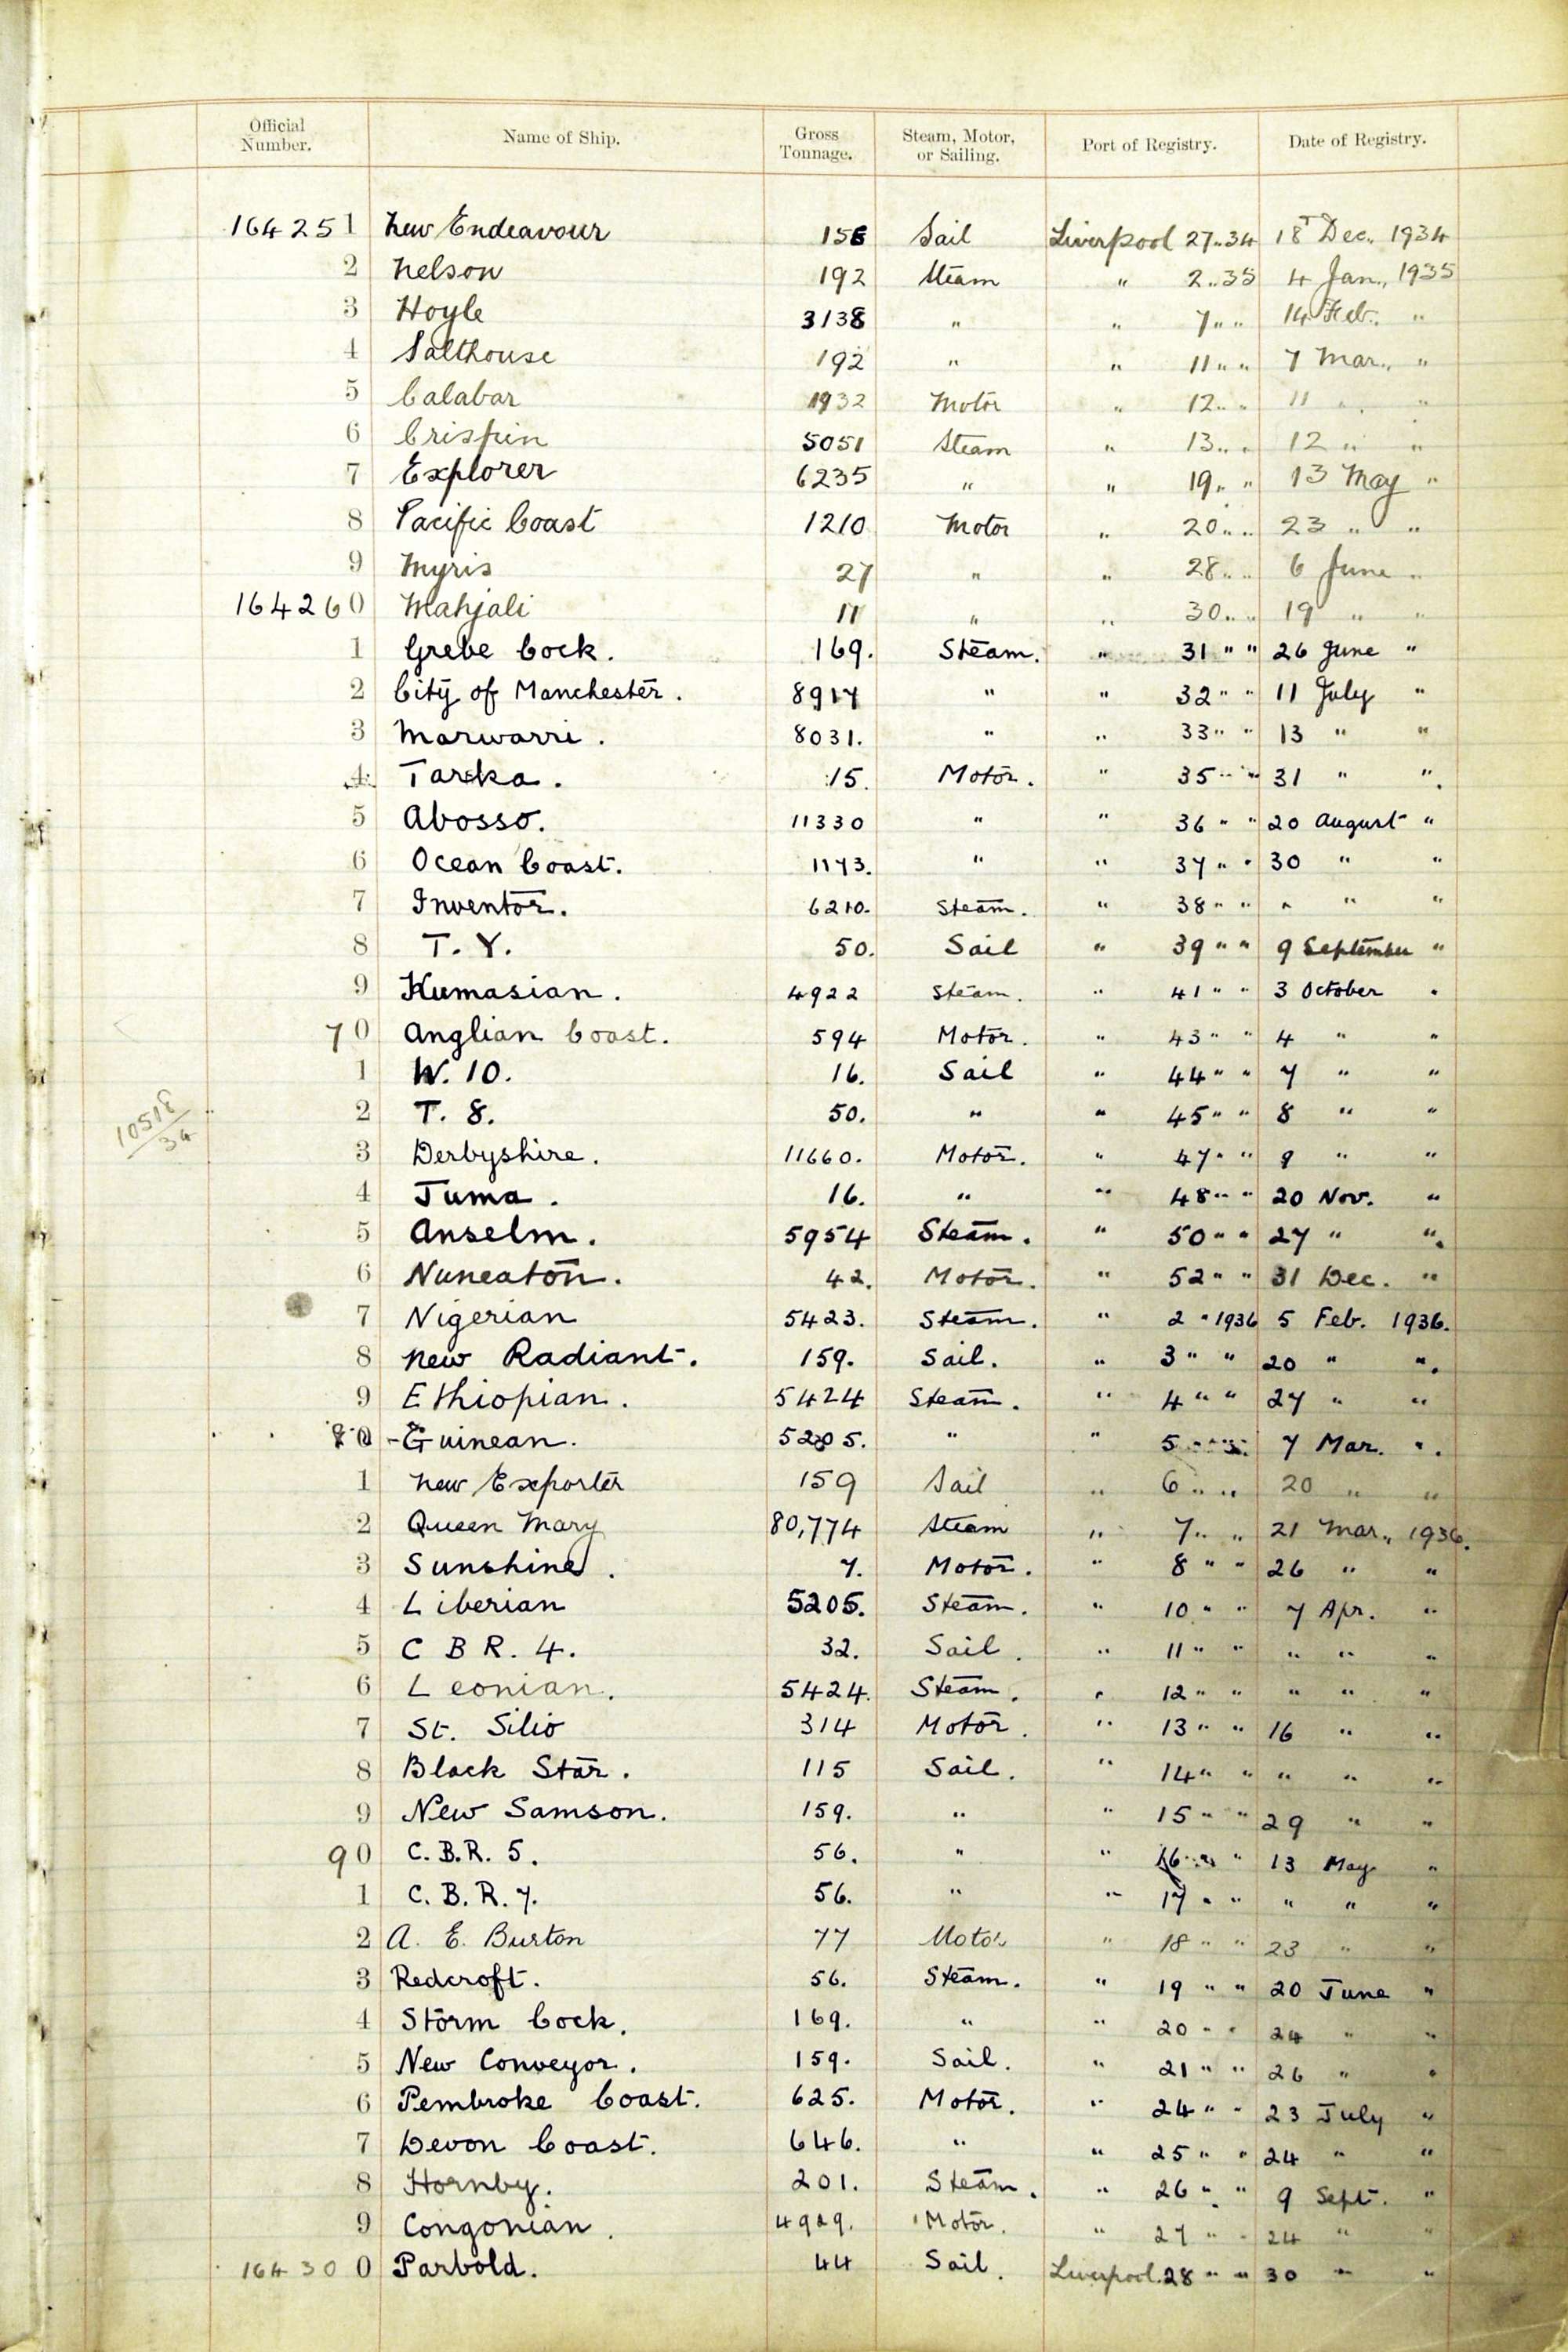 Official Number. Name of Ship. Gross Tonnage. Steam, Motor, or Sailing. Port of Registry. Date of Registry.
164251 New Endeavour 156 Sail Liverpool 27..34 18 Dec., 1934
2 Nelson 192 Steam " 2..35 4 Jan., 1935
3 Hoyle 3138 " " 7 " " 14 Feb. "
4 Salthouse 192 " " 11 " " 7 Mar., "
5 Calabar 1932 Motor " 12 " " 11 " "
6 Crispin 5051 Steam " 13 " " 12 " "
7 Explorer 6235 " " 19 " " 13 May "
8 Pacific Coast 1210 Motor " 20 " " 23 " "
9 Myris 27 " " 28 " " 6 June "
164260 Mahjali 11 " " 30 " " 19 " "
1 Grebe Cock. 169. Steam. " 31 " " 26 June "
2 City of Manchester. 8917 " " 32 " " 11 July "
3 Marwarri. 8031. " " 33 " " 13 " "
4 Tarka. 15. Motor. " 35 " " 31 " ".
5 Abosso. 11330 " " 36 " " 20 August "
6 Ocean Coast. 1173. " " 37 " " 30 " "
7 Inventor. 6210. Steam. " 38 " " " " "
8 T. Y. 50. Sail " 39 " " 9 September "
9 Kumasian. 4922 Steam. " 41 " " 3 October "
70 Anglian Coast. 594 Motor. " 43 " " 4 " "
1 W. 10. 16. Sail " 44 " " 7 " "
10518/34
2 T. 8. 50. " " 45 " " 8 " "
3 Derbyshire. 11660. Motor. " 47 " " 9 " "
4 Juma. 16. " " 48 " " 20 Nov. "
5 Anselm. 5954 Steam. " 50 " " 27 " ".
6 Nuneaton. 42. Motor. " 52 " " 31 Dec. "
7 Nigerian 5423. Steam. " 2 " 1936 5 Feb. 1936.
8 New Radiant. 159. Sail. " 3 " " 20 " ".
9 Ethiopian. 5424 Steam. " 4 " " 27 " "
80 Guinean. 5205. " " 5 " " 7 Mar. ".
1 New Exporter 159 Sail " 6 " " 20 " "
2 Queen Mary 80,774 Steam " 7 " " 21 Mar., 1936.
3 Sunshine. 7. Motor. " 8 " " 26 " "
4 Liberian 5205. Steam. " 10 " " 7 Apr. "
5 C B R. 4. 32. Sail. " 11 " " " " "
6 Leonian. 5424. Steam. " 12 " " " " "
7 St. Silio 314 Motor. " 13 " " 16 " "
8 Black Star. 115 Sail. " 14 " " " " "
9 New Samson. 159. " " 15 " " 29 " "
90 C.B.R. 5. 56. " " 16 " " 13 May "
1 C.B.R. 7. 56. " " 17 " " " " "
2 A. E. Burton 77 Motor " 18 " " 23 " "
3 Redcroft. 56. Steam. " 19 " " 20 June "
4 Storm Cock. 169. " " 20 " " 24 " "
5 New Conveyor. 159. Sail. " 21 " " 26 " "
6 Pembroke Coast. 625. Motor. " 24 " " 23 July "
7 Devon Coast. 646. " " 25 " " 24 " "
8 Hornby. 201. Steam. " 26 " " 9 Sept. "
9 Congonian. 4929. Motor. " 27 " " 24 " "
164300 Parbold. 44 Sail. Liverpool. 28 " " 30 " "